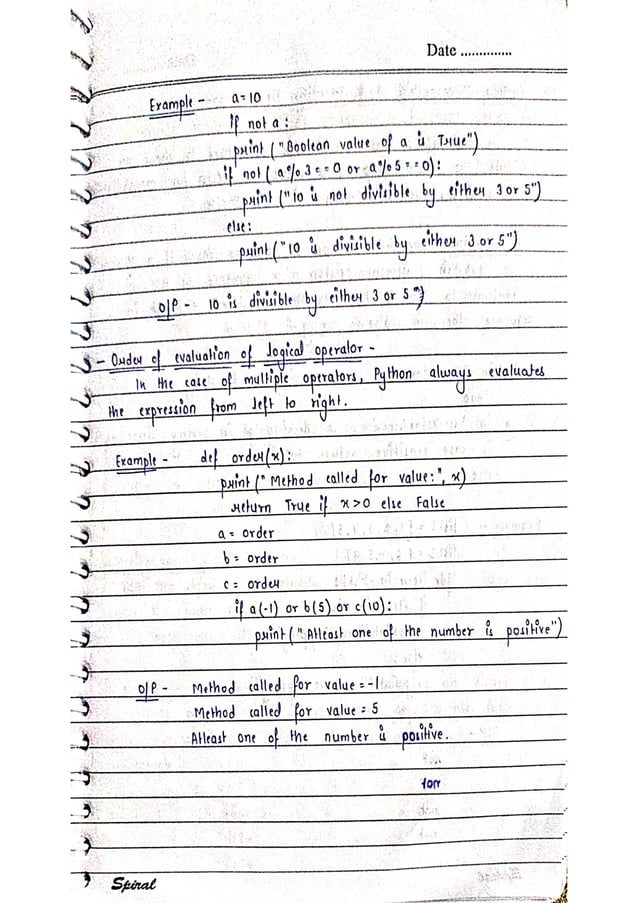 Date ..............
Example - a=10
if not a :
print ("Boolean value of a is True")
if not ( a%3==0 or a%5==0):
print ("10 is not divisible by either 3 or 5")
else:
print ("10 is divisible by either 3 or 5")
O/P - 10 is divisible by either 3 or 5")
- Order of evaluation of logical operator -
In the case of multiple operators, Python always evaluates
the expression from left to right.
Example - def order(x):
print (" Method called for value:", x)
return True if x>0 else False
a = order
b = order
c = order
if a(-1) or b(5) or c(10):
print (" Atleast one of the number is positive")
O/P - Method called for value = -1
Method called for value = 5
Atleast one of the number is positive.
Spiral